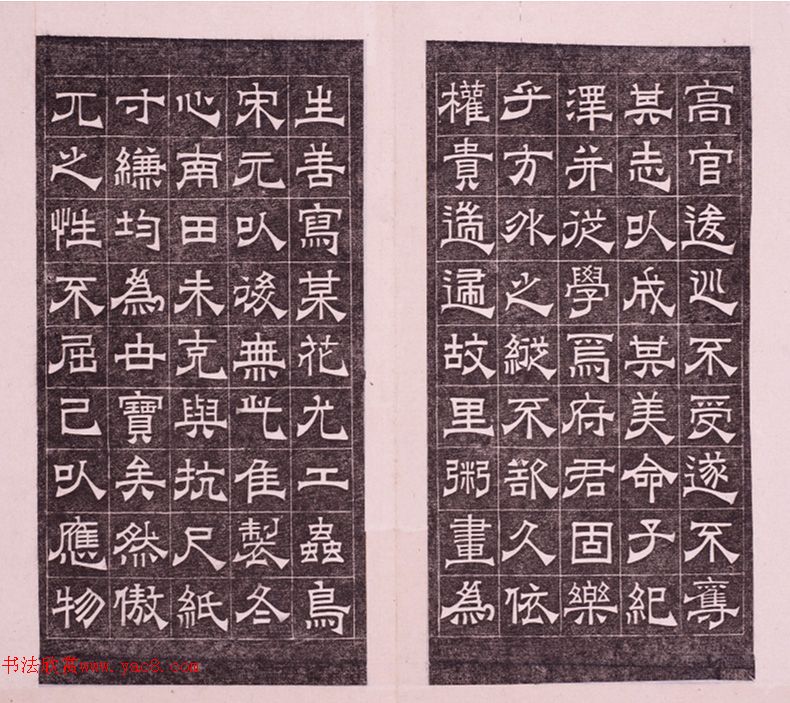 高官逡巡不受遂不奪
其志以成其美命子紀
澤并從學焉府君固樂
乎方外之縱不欲久依
權貴遄歸故里粥畫為
生善寫某花尤工蟲鳥
宋元以後無此隹製冬
心南田未克與抗尺紙
寸縑均為古寶矣然傲
兀之性不屈己以應物
书法欣赏www.yac8.com